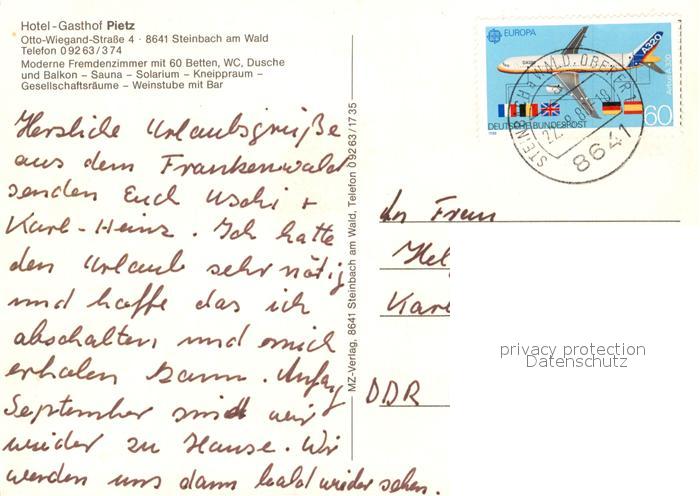 Hotel-Gasthof Pietz
Otto-Wiegand-Straße 4 · 8641 Steinbach am Wald
Telefon 09263/374
Moderne Fremdenzimmer mit 60 Betten, WC, Dusche
und Balkon – Sauna – Solarium – Kneippraum –
Gesellschaftsräume – Weinstube mit Bar
Herzliche Urlaubsgrüße
aus dem Frankenwald
senden Euch Uschi +
Karl-Heinz. Ich hatte
den Urlaub sehr nötig
und hoffe das ich
abschalten und mich
erholen kann. Anfang
September sind wir
wieder zu Hause. Wir
werden uns dann bald wieder sehen.
MZ-Verlag, 8641 Steinbach am Wald, Telefon 09263/1735
EUROPA
A320
Airbus A320
DEUTSCHE BUNDESPOST
60
1988
8641
An Frau
Hel
Karl
DDR
privacy protection
Detailansicht